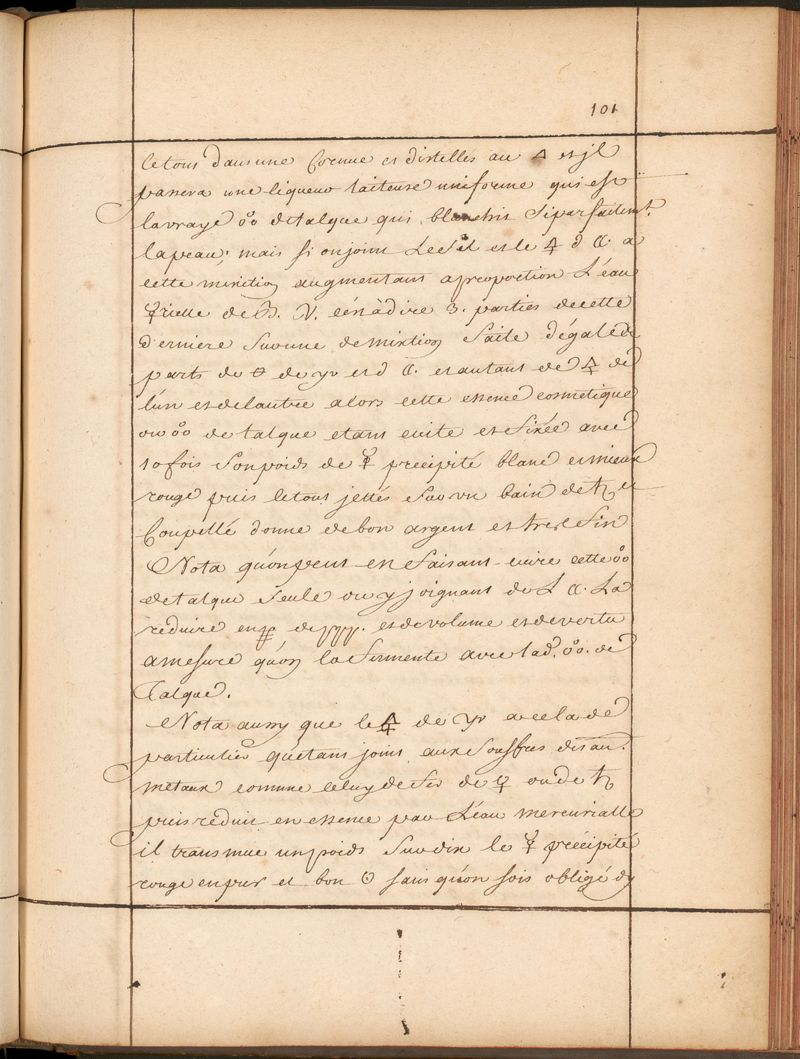 101
le tout dans une Cornue et distellés au 🜂 et jl
passera une liqueur laiteuse uniforme qui est
la vraye o°o de talque qui blanchit si parfaitemt.
la peau, mais si on joint le sel et le 🜍 d a
cette mixtion augmentant a proportion L'eau
☿rielle de B. V. c'en à dire 3. parties de cette
derniere sur une de mixtion faite d'égale de
parts de de et d et autant de 🜍 de
l'un et de lautre alors cette essence cosmetique
ou o°o de talque etant cuite et fixée avec
10 fois son poids de ☿ precipité blanc et mieux
rouge puis le tout jettés sur vn bain de ♄ et
Coupellé donne de bon argent et tres fin
Nota qu'on peut en faisant cuire cette o°o
de talque seule ou y joignant du La
reduire en de et de volume et de vertu
a mesure qu'on la fermente avec lad. o°o. de
Talque.
Nota aussy que le 🜍 de a cela de
particulier qu'etant joint aux souffres des au.
metaux comme celuy de fer de ♀ ou de ♄
puis reduit en essence par L'eau mercurialle
il transmue un poids sur dix le ☿ précipité
rouge en pur et bon ☉ sans qu'on sois obligé dy